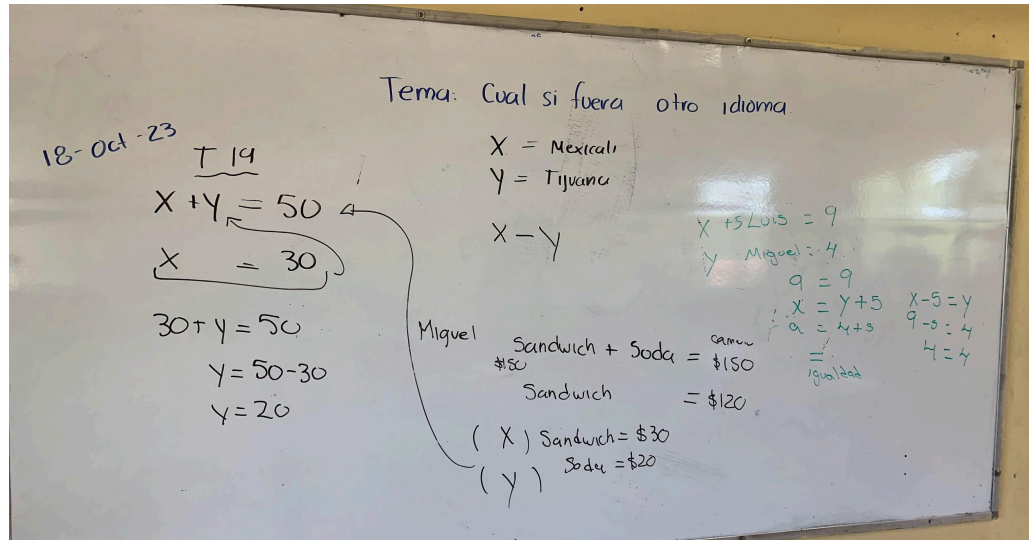 Tema: Cual si fuera otro idioma
18-Oct-23
T 19
X + Y = 50
X = 30
30 + y = 50
y = 50-30
y = 20
X = Mexicali
Y = Tijuana
X - Y
Miguel
Sandwich + Soda = $150
$150
Sandwich = $120
( X ) Sandwich = $30
( Y ) Soda = $20
X + 5 Luis = 9
y Miguel = 4
9 = 9
X = Y + 5
9 = 4 + 5
=
igualdad
X - 5 = Y
9 - 5 = 4
4 = 4